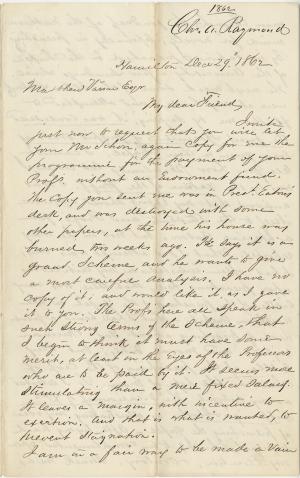 1862
Chs. A. Raymond
Hamilton Dec 29th 1862
Matthew Vassar Esqr
My dear Friend,
I write
just now to request that you will let
your Mr Schou, again Copy for me the
programme for the payment of your
Profs. without an Endowment fund.
The Copy you sent me was in Prest. Eaton's
desk, and was destroyed with some
other papers, at the time his house was
burned, two weeks ago. He says it is a
grand Scheme, and he wants to give
a most careful Analysis. I have no
copy of it, and would like it, as I gave
it to you. The Profs here all speak in
such strong terms of the Scheme, that
I begin to think it must have some
merit, at least in the Eyes of the Professors
who are to be paid by it. It seems more
stimulating than a mere fixed Salary.
It leaves a Margin, with incentive to
exertion. And that is what is wanted, to
prevent Stagnation.
I am in a fair way to be made a Vain